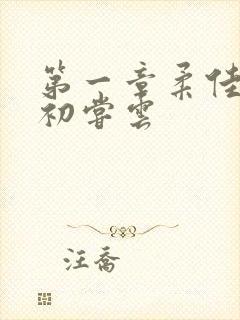 第一章柔佳
初尝雲
汪喬